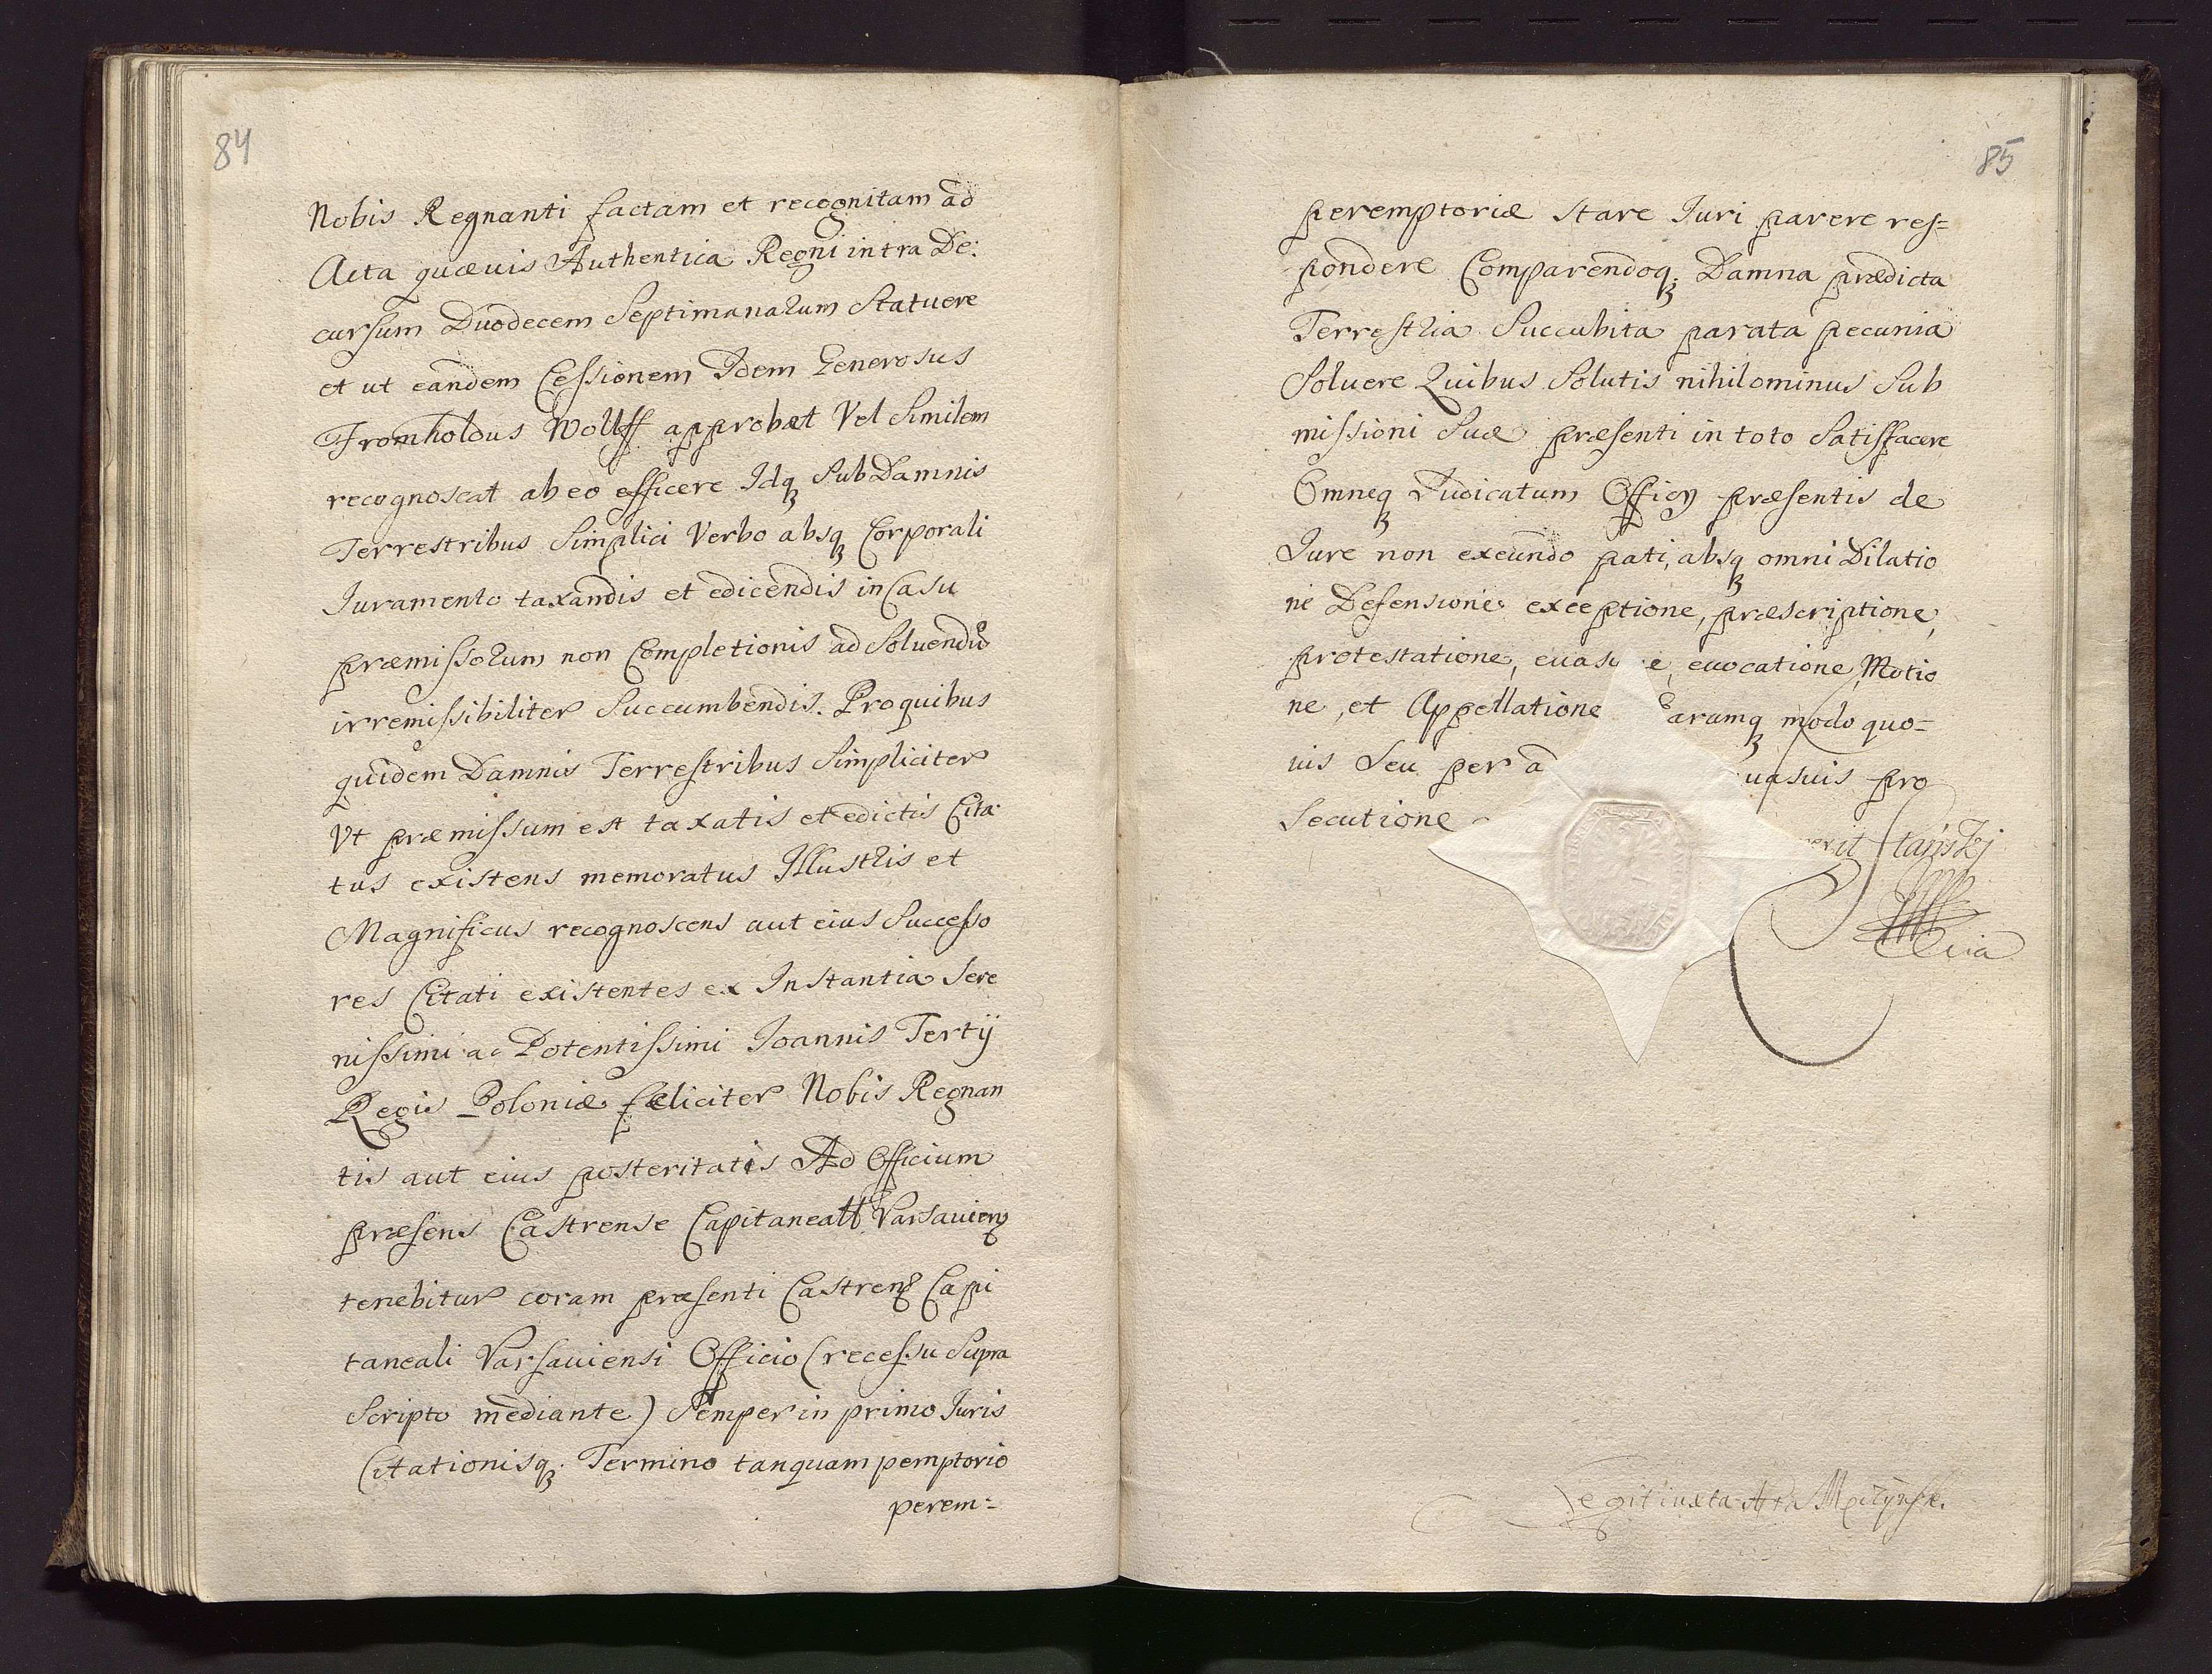 84
Nobis Regnanti factam et recognitam ad
Acta quævis Authentica Regni intra De:
cursum Duodecem Septimanarum Statuere
et ut eandem Cessionem Idem Generosus
Fromholdus Wolff approbæt Vel Similem
recognoscat ab eo efficere Idqꝫ Sub Damnis
Terrestribus Simplici Verbo absqꝫ Corporali
Iuramento taxandis et edicendis in Casu
præmissorum non Completionis ad Soluendū
irremissibiliter Succumbendis. Pro quibus
quidem Damnis Terrestribus Simpliciter
Vt præmissum est taxatis et edictis Cita
tus existens memoratus Illustris et
Magnificus recognoscens aut eius Successo
res Citati existentes ex Instantia Sere
nissimi ac Potentissimi Ioannis Tertij
Regis Poloniæ fæliciter Nobis Regnan
tis aut eius posteritatis Ad Officium
præsens Castrense Capitaneale Varsauienꝫ
tenebitur coram præsenti Castrenꝫ Capi
taneali Varsauiensi Officio (recessu Supra
Scripto mediante) Semper in primo Iuris
Citationisqꝫ. Termino tanquam pemptorio
perem=
85
peremptoriæ stare Iuri parere res=
pondere Comparendoqꝫ Damna prædicta
Terrestria Succubita parata pecunia
Soluere Quibus Solutis nihilominus Sub
missioni Suæ præsenti in toto Satisfacere
Omneqꝫ Iudicatum Officy præsentis de
Iure non exeundo pati, absqꝫ omni Dilatio
ne Defensione exceptione, præscriptione,
protestatione, euas e, euocatione, Motio
ne, et Appellatione Earumqꝫ modo quo=
uis Seu per a uasuis pro
Secutione